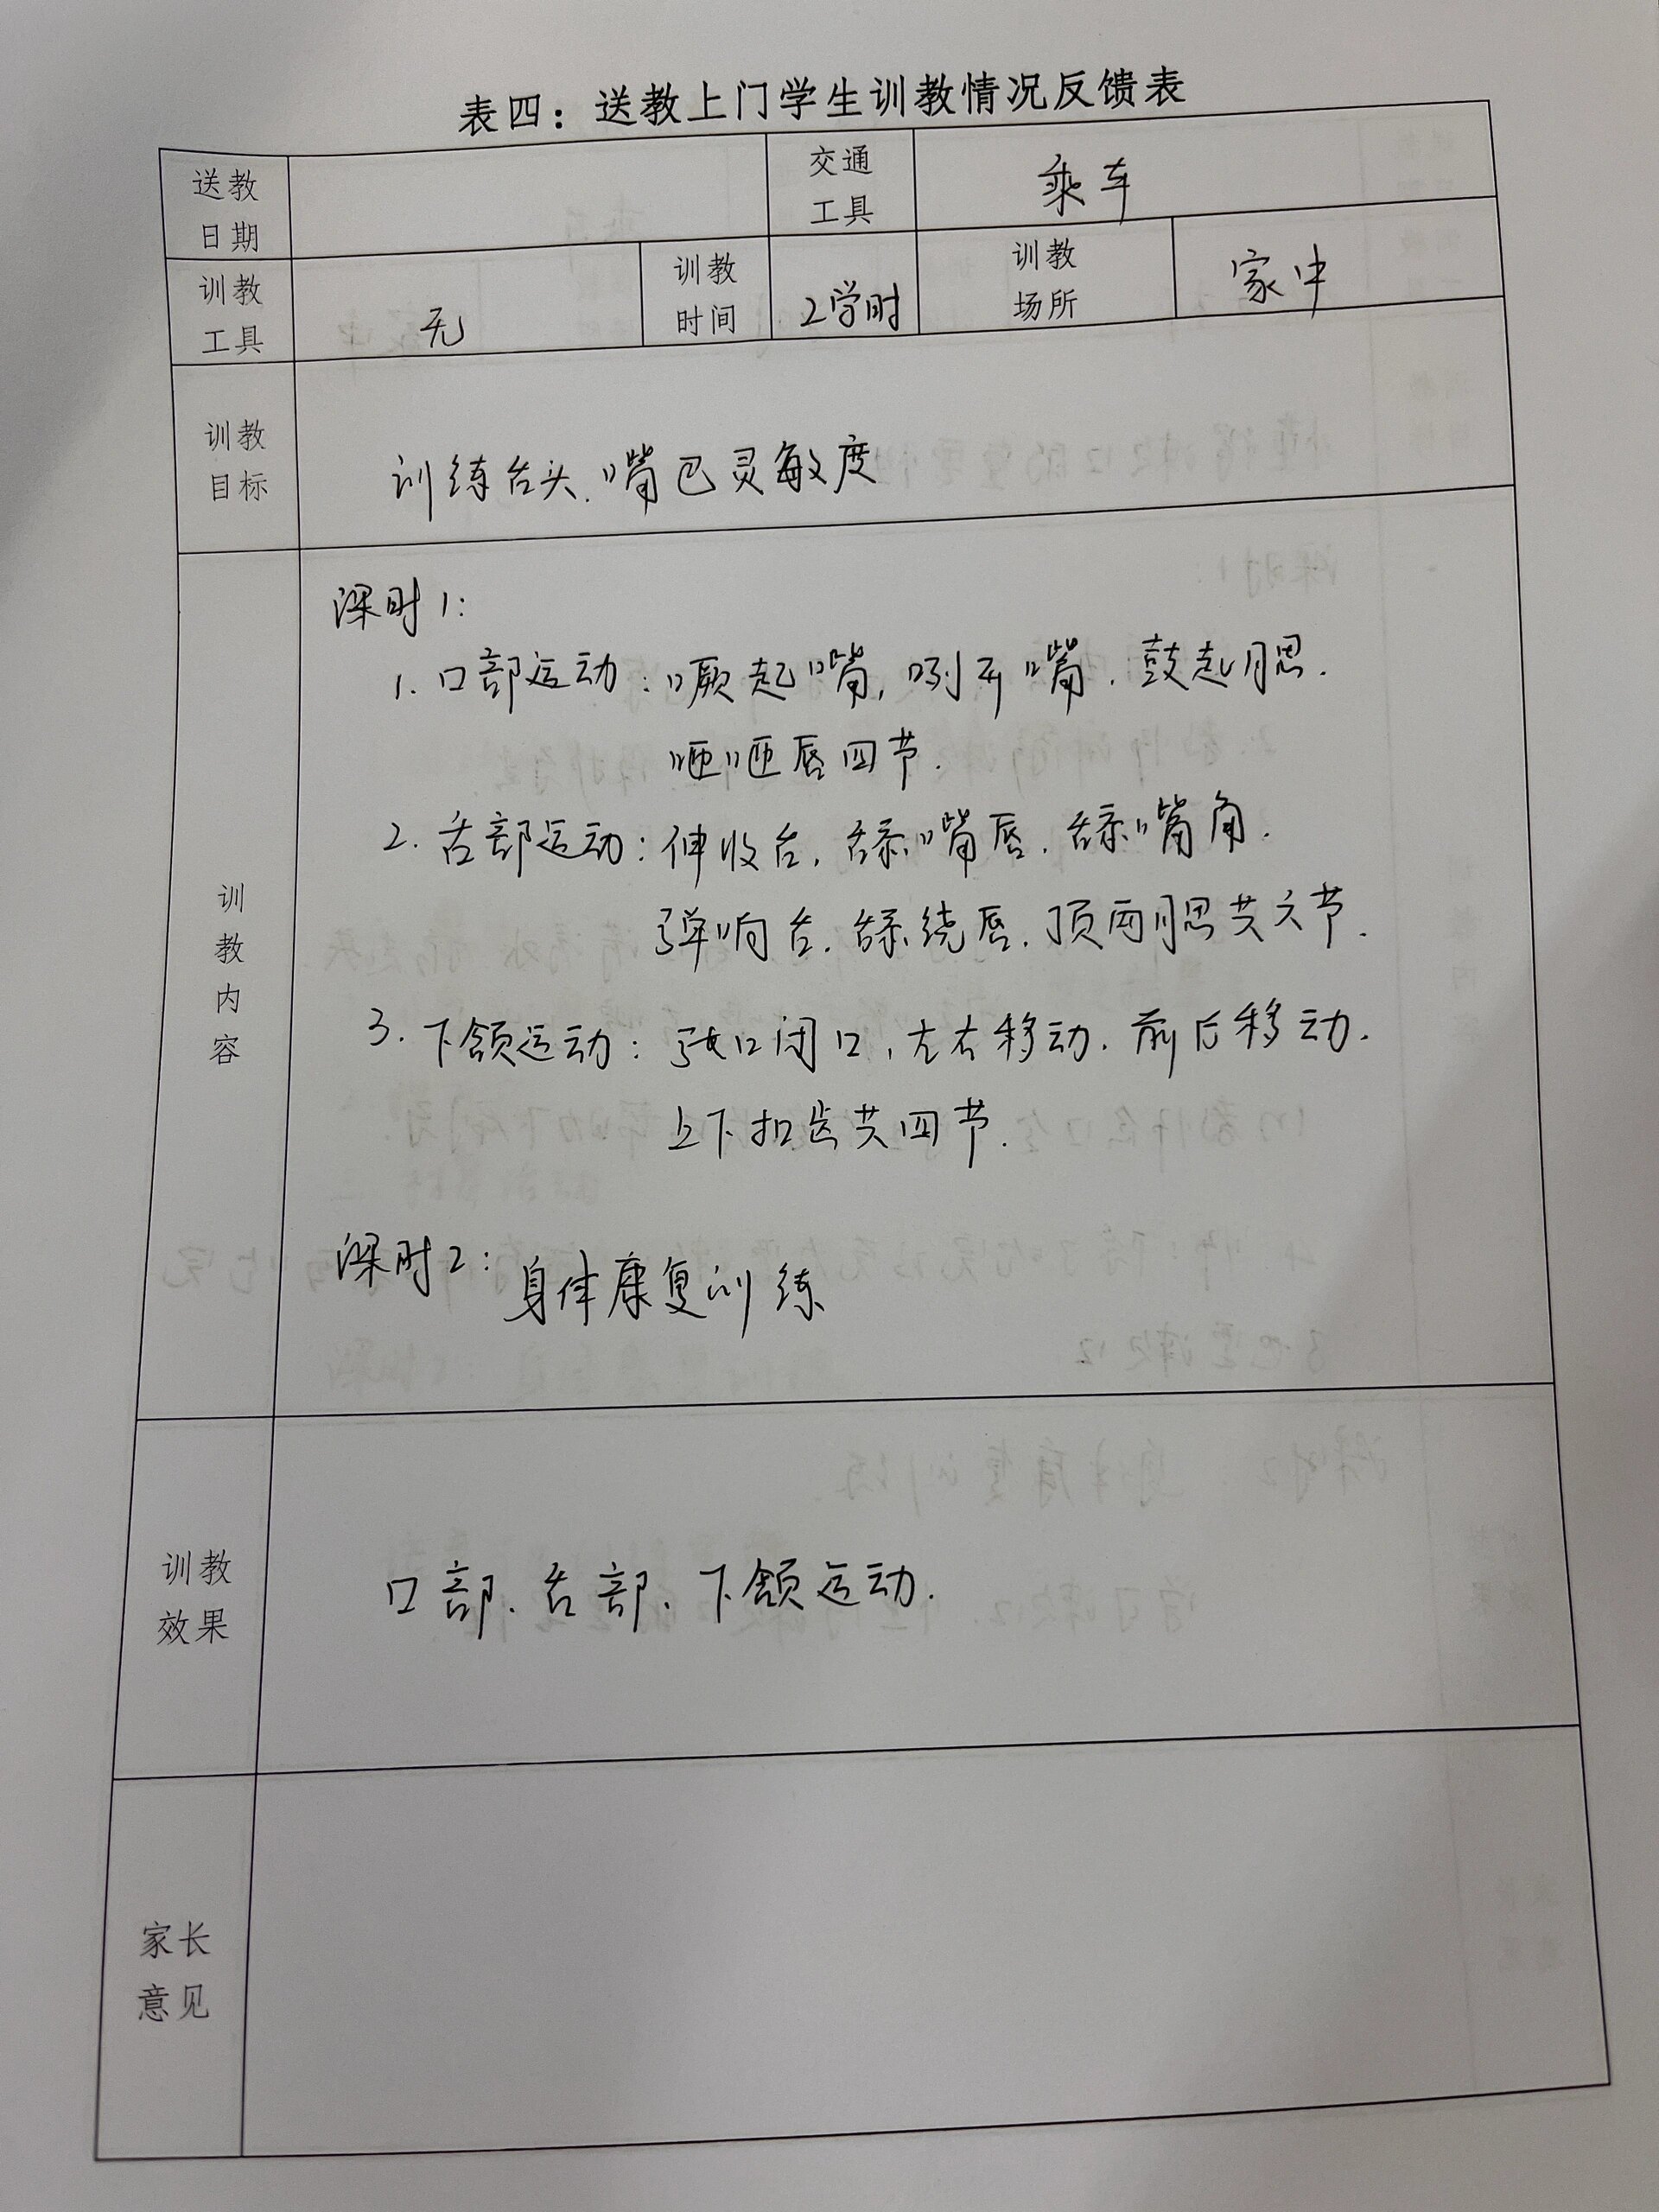 表四：送教上门学生训教情况反馈表
送教日期
交通工具
乘车
训教工具
无
训教时间
2学时
训教场所
家中
训教目标
训练舌头、嘴巴灵敏度
训教内容
课时1：
1. 口部运动：噘起嘴，咧开嘴、鼓起腮、
咂咂唇四节.
2. 舌部运动：伸收舌、舔嘴唇、舔嘴角、
弹响舌、舔绕唇、顶两腮共六节.
3. 下颌运动：张口闭口，左右移动、前后移动、
上下扣齿共四节.
课时2：身体康复训练
训教效果
口部、舌部、下颌运动.
家长意见